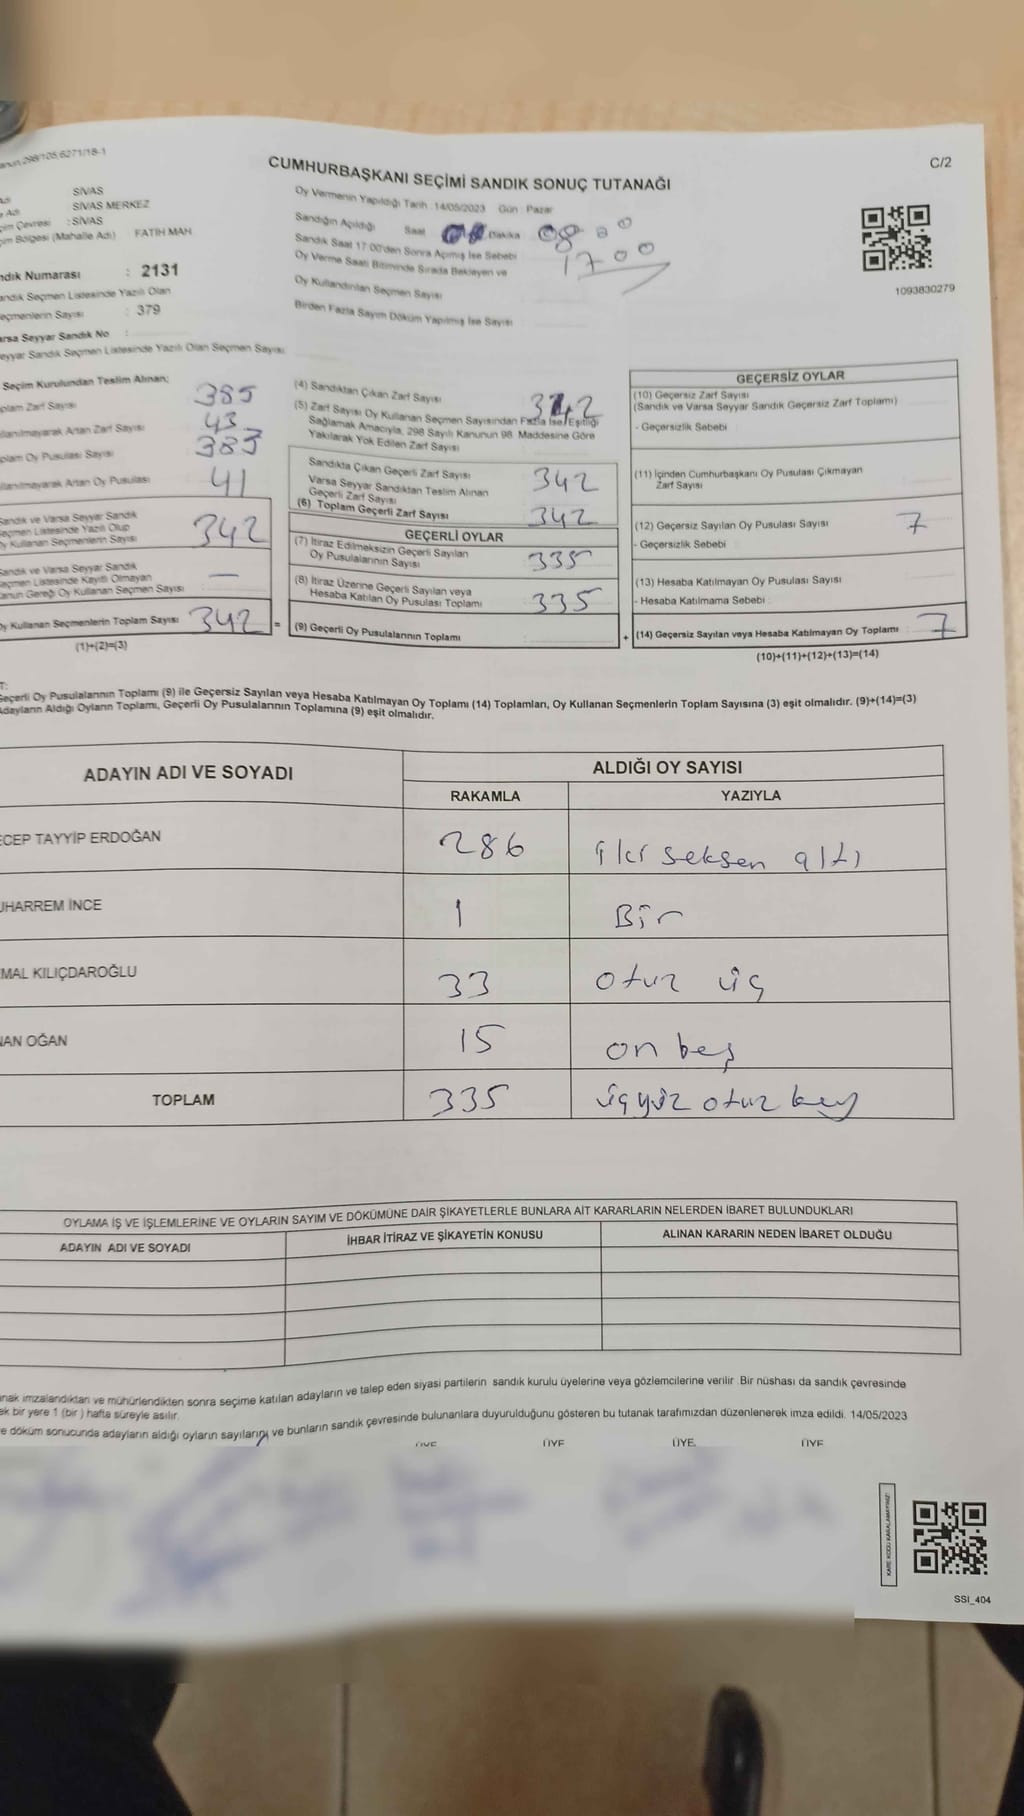 298/105,6271/18-1
C/2
CUMHURBAŞKANI SEÇİMİ SANDIK SONUÇ TUTANAĞI
SİVAS
Adı SİVAS MERKEZ
im Çevresi : SİVAS
im Bölgesi (Mahalle Adı) FATİH MAH
ndık Numarası : 2131
andık Seçmen Listesinde Yazılı Olan
eçmenlerin Sayısı : 379
arsa Seyyar Sandık No :
eyyar Sandık Seçmen Listesinde Yazılı Olan Seçmen Sayısı
Oy Vermenin Yapıldığı Tarih :14/05/2023 Gün : Pazar
Sandığın Açıldığı Saat Dakika 08 00
Sandık Saat 17:00'den Sonra Açılmış İse Sebebi
17 00
Oy Verme Saati Bitiminde Sırada Bekleyen ve
Oy Kullandırılan Seçmen Sayısı
Birden Fazla Sayım Döküm Yapılmış İse Sayısı
1093830279
Seçim Kurulundan Teslim Alınan;
plam Zarf Sayısı 385
ullanılmayarak Artan Zarf Sayısı 43
plam Oy Pusulası Sayısı 383
ullanılmayarak Artan Oy Pusulası 41
Sandık ve Varsa Seyyar Sandık
eçmen Listesinde Yazılı Olup
y Kullanan Seçmenlerin Sayısı 342
Sandık ve Varsa Seyyar Sandık
eçmen Listesinde Kayıtlı Olmayan
anun Gereği Oy Kullanan Seçmen Sayısı —
Oy Kullanan Seçmenlerin Toplam Sayısı 342 =
(1)+(2)=(3)
(4) Sandıktan Çıkan Zarf Sayısı 342
(5) Zarf Sayısı Oy Kullanan Seçmen Sayısından Fazla İse, Eşitliği
Sağlamak Amacıyla, 298 Sayılı Kanunun 98. Maddesine Göre
Yakılarak Yok Edilen Zarf Sayısı
Sandıkta Çıkan Geçerli Zarf Sayısı 342
Varsa Seyyar Sandıktan Teslim Alınan
Geçerli Zarf Sayısı
(6) Toplam Geçerli Zarf Sayısı 342
GEÇERLİ OYLAR
(7) İtiraz Edilmeksizin Geçerli Sayılan
Oy Pusulalarının Sayısı 335
(8) İtiraz Üzerine Geçerli Sayılan veya
Hesaba Katılan Oy Pusulası Toplamı 335
(9) Geçerli Oy Pusulalarının Toplamı +
GEÇERSİZ OYLAR
(10) Geçersiz Zarf Sayısı
(Sandık ve Varsa Seyyar Sandık Geçersiz Zarf Toplamı)
- Geçersizlik Sebebi
(11) İçinden Cumhurbaşkanı Oy Pusulası Çıkmayan
Zarf Sayısı
(12) Geçersiz Sayılan Oy Pusulası Sayısı 7
- Geçersizlik Sebebi
(13) Hesaba Katılmayan Oy Pusulası Sayısı
- Hesaba Katılmama Sebebi
(14) Geçersiz Sayılan veya Hesaba Katılmayan Oy Toplamı 7
(10)+(11)+(12)+(13)=(14)
T:
Geçerli Oy Pusulalarının Toplamı (9) ile Geçersiz Sayılan veya Hesaba Katılmayan Oy Toplamı (14) Toplamları, Oy Kullanan Seçmenlerin Toplam Sayısına (3) eşit olmalıdır. (9)+(14)=(3)
Adayların Aldığı Oyların Toplamı, Geçerli Oy Pusulalarının Toplamına (9) eşit olmalıdır.
ADAYIN ADI VE SOYADI ALDIĞI OY SAYISI
RAKAMLA YAZIYLA
ECEP TAYYİP ERDOĞAN 286 iki seksen altı
UHARREM İNCE 1 Bir
MAL KILIÇDAROĞLU 33 otuz üç
NAN OĞAN 15 on beş
TOPLAM 335 üçyüz otuz beş
OYLAMA İŞ VE İŞLEMLERİNE VE OYLARIN SAYIM VE DÖKÜMÜNE DAİR ŞİKAYETLERLE BUNLARA AİT KARARLARIN NELERDEN İBARET BULUNDUKLARI
ADAYIN ADI VE SOYADI İHBAR İTİRAZ VE ŞİKAYETİN KONUSU ALINAN KARARIN NEDEN İBARET OLDUĞU
anak imzalandıktan ve mühürlendikten sonra seçime katılan adayların ve talep eden siyasi partilerin sandık kurulu üyelerine veya gözlemcilerine verilir .Bir nüshası da sandık çevresinde
ek bir yere 1 (bir ) hafta süreyle asılır.
e döküm sonucunda adayların aldığı oyların sayılarını ve bunların sandık çevresinde bulunanlara duyurulduğunu gösteren bu tutanak tarafımızdan düzenlenerek imza edildi. 14/05/2023
ÜYE ÜYE ÜYE ÜYE
KARE KODU KARALAMAYINIZ!
SSI_404